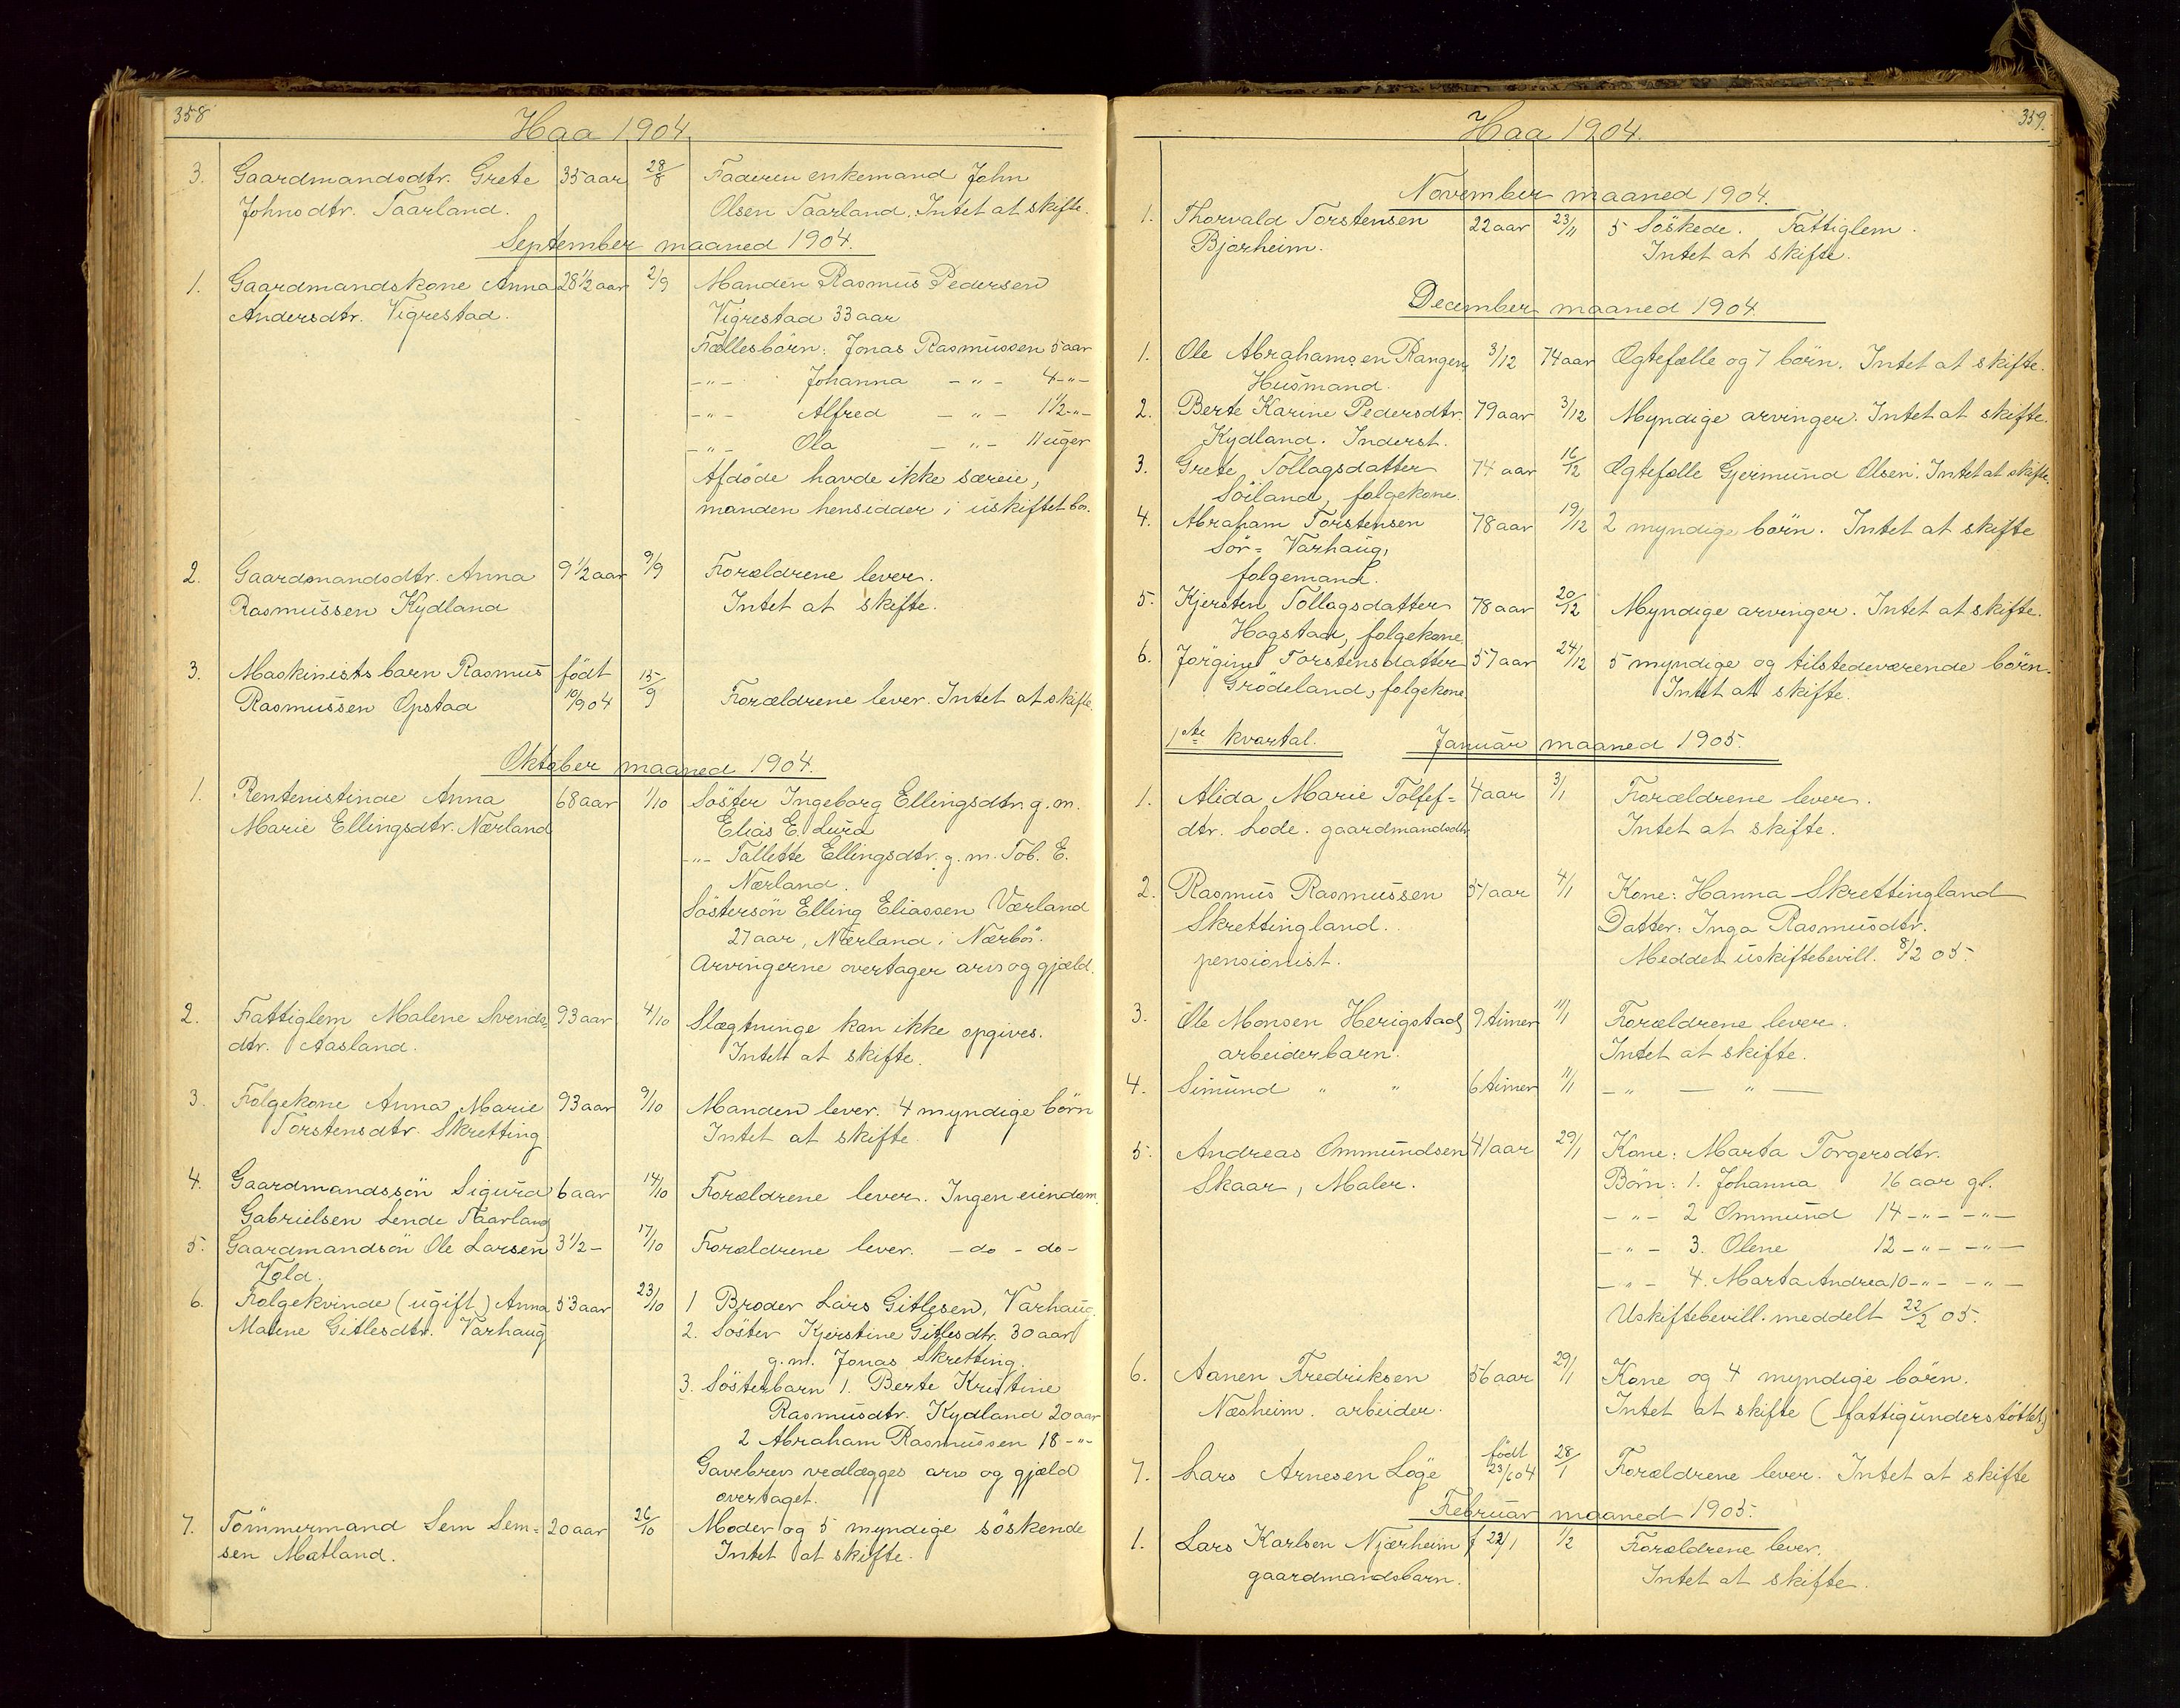 358
Haa 1904.
3. Gaardmandsdtr. Grete 35 aar 28/8 Faderen enkemand John
Johnsdtr. Taarland. Olsen Taarland. Intet at skifte.
September maaned 1904.
1. Gaardmandskone Anna 28 1/2 aar 2/9 Manden Rasmus Pedersen
Andersdtr. Vigrestad. Vigrestad 33 aar
Fællesbörn: Jonas Rasmussen 5 aar
-"- Johanna -"- 4 -"-
-"- Alfred -"- 1 1/2 -"-
-"- Ola -"- 11 uger
Afdöde havde ikke særeie,
manden hensidder i uskiftet bo.
2. Gaardmandsdtr. Anna 9 1/2 aar 9/9 Forældrene lever.
Rasmussen Kydland Intet at skifte.
3. Maskinists barn Rasmus födt 15/9
Rasmussen Opstad 10/9 04 Forældrene lever. Intet at skifte.
Oktober maaned 1904.
1. Rentenistinde Anna 68 aar 1/10 Söster Ingeborg Ellingsdtr. g. m.
Marie Ellingsdtr. Nærland Elias E. Lura
-"- Tallette Ellingsdtr. g. m. Tob. E.
Nærland.
Söstersön Elling Eliassen Værland
27 aar, Nærland i Nærbö.
Arvingerne overtager arv og gjæld.
2. Fattiglem Malene Svends- 93 aar 4/10 Slægtninge kan ikke opgives.
dtr. Aasland. Intet at skifte.
3. Folgekone Anna Marie 93 aar 9/10 Manden lever. 4 myndige börn
Torstensdtr. Skretting Intet at skifte
4. Gaardmandssön Sigurd 6 aar 14/10 Forældrene lever. Ingen eiendom.
Gabrielsen Lende Taarland
5. Gaardmandsön Ole Larsen 3 1/2 - 17/10 Forældrene lever. - do - do -
Vold.
6. Folgekvinde (ugift) Anna 53 aar 23/10 1 Broder Lars Gitlesen, Varhaug.
Malene Gitlesdtr. Varhaug 2. Söster Kjerstine Gitlesdtr. 30 aar
g. m. Jonas Skretting.
3. Sösterbarn 1. Berte Kristine
Rasmusdtr. Kydland 20 aar
2 Abraham Rasmussen 18 -"-
Gavebrev vedlægges arv og gjæld
overtaget.
7. Tömmermand Sem Sem- 20 aar 26/10 Moder og 5 myndige söskende
sen Matland. Intet at skifte.
359.
Haa 1904.
November maaned 1904.
1. Thorvald Torstensen 22 aar 23/11 5 Söskede. Fattiglem.
Bjorheim. Intet at skifte.
December maaned 1904
1. Ole Abrahamsen Rangen 3/12 74 aar Ægtefælle og 7 börn. Intet at skifte.
Husmand.
2. Berte Karine Pedersdtr. 79 aar 3/12 Myndige arvinger. Intet at skifte.
Kydland. Inderst.
3. Grete Tollagsdatter 74 aar 16/12 Ægtefælle Gjermund Olsen. Intet at skifte.
Söiland, folgekone.
4. Abraham Torstensen 78 aar 19/12 2 myndige börn. Intet at skifte
Sör- Varhaug,
folgemand.
5. Kjersten Tollagsdatter 78 aar 20/12 Myndige arvinger. Intet at skifte.
Hogstad, folgekone.
6. Jörgine Torstensdatter 57 aar 24/12 5 myndige og tilstedeværende börn.
Grödeland, folgekone. Intet at skifte.
1ste kvartal. Januar maaned 1905.
1. Alida Marie Tollef- 4 aar 3/1 Forældrene lever.
dtr. Lode. gaardmandsdtr. Intet at skifte.
2. Rasmus Rasmussen 51 aar 4/1 Kone: Hanna Skrettingland
Skrettingland. Datter: Inga Rasmusdtr.
pensionist. Meddelt uskiftebevill. 8/2 05.
3. Ole Monsen Herigstad 9 timer 11/1 Forældrene lever.
arbeiderbarn. Intet at skifte.
4. Simund " " 6 timer 11/1 -"- — " —
5. Andreas Ommundsen 41 aar 29/1 Kone: Marta Torgersdtr.
Skaar, Maler. Börn: 1. Johanna 16 aar gl.
-"- 2 Ommund 14 -"- -"-
-"- 3. Olene 12 -"- -"-
-"- 4. Marta Andrea 10 -"- -"-
Uskiftebevill. meddelt 22/2 05.
6. Aanen Fredriksen 56 aar 29/1 Kone og 4 myndige börn.
Næsheim. arbeider. Intet at skifte (fattigunderstöttet)
7. Lars Arnesen Löge födt 23/6 04 28/1 Forældrene lever. Intet at skifte
Februar maaned 1905.
1. Lars Karlsen Njærheim f 22/1 1/2 Forældrene lever.
gaardmandsbarn. Intet at skifte.